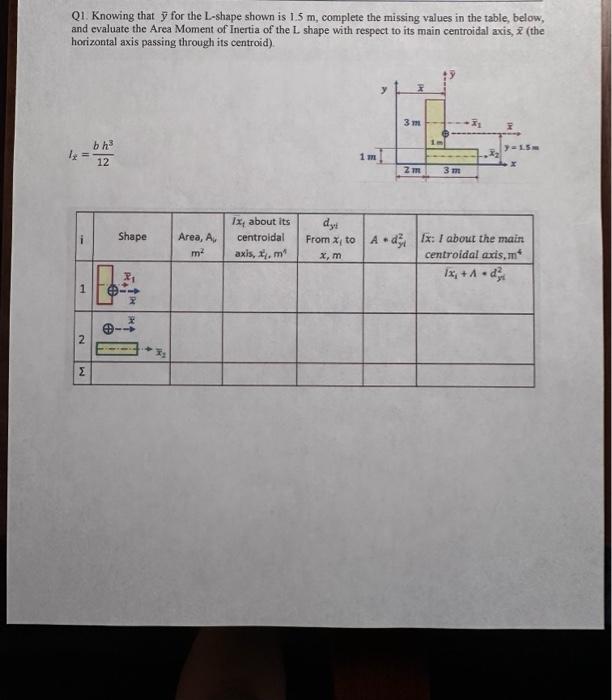 Q1. Knowing that ȳ for the L-shape shown is 1.5 m, complete the missing values in the table, below,
and evaluate the Area Moment of Inertia of the L shape with respect to its main centroidal axis, x̄ (the
horizontal axis passing through its centroid).
ȳ
y
x̄
3 m
x̄₁
x̄
1m
y = 1.5m
x̄₂
1 m
x
2 m
3 m
Iₓ̄ = b h³ / 12
i
Shape
Area, Aᵢ, m²
Ix̄ᵢ about its centroidal axis, x̄ᵢ, m⁴
dyᵢ From x̄ᵢ to x̄, m
A * d²yᵢ
Ix̄: I about the main centroidal axis, m⁴
Ix̄ᵢ + A * d²yᵢ
1
x̄₁
x̄
2
x̄
x̄₂
Σ